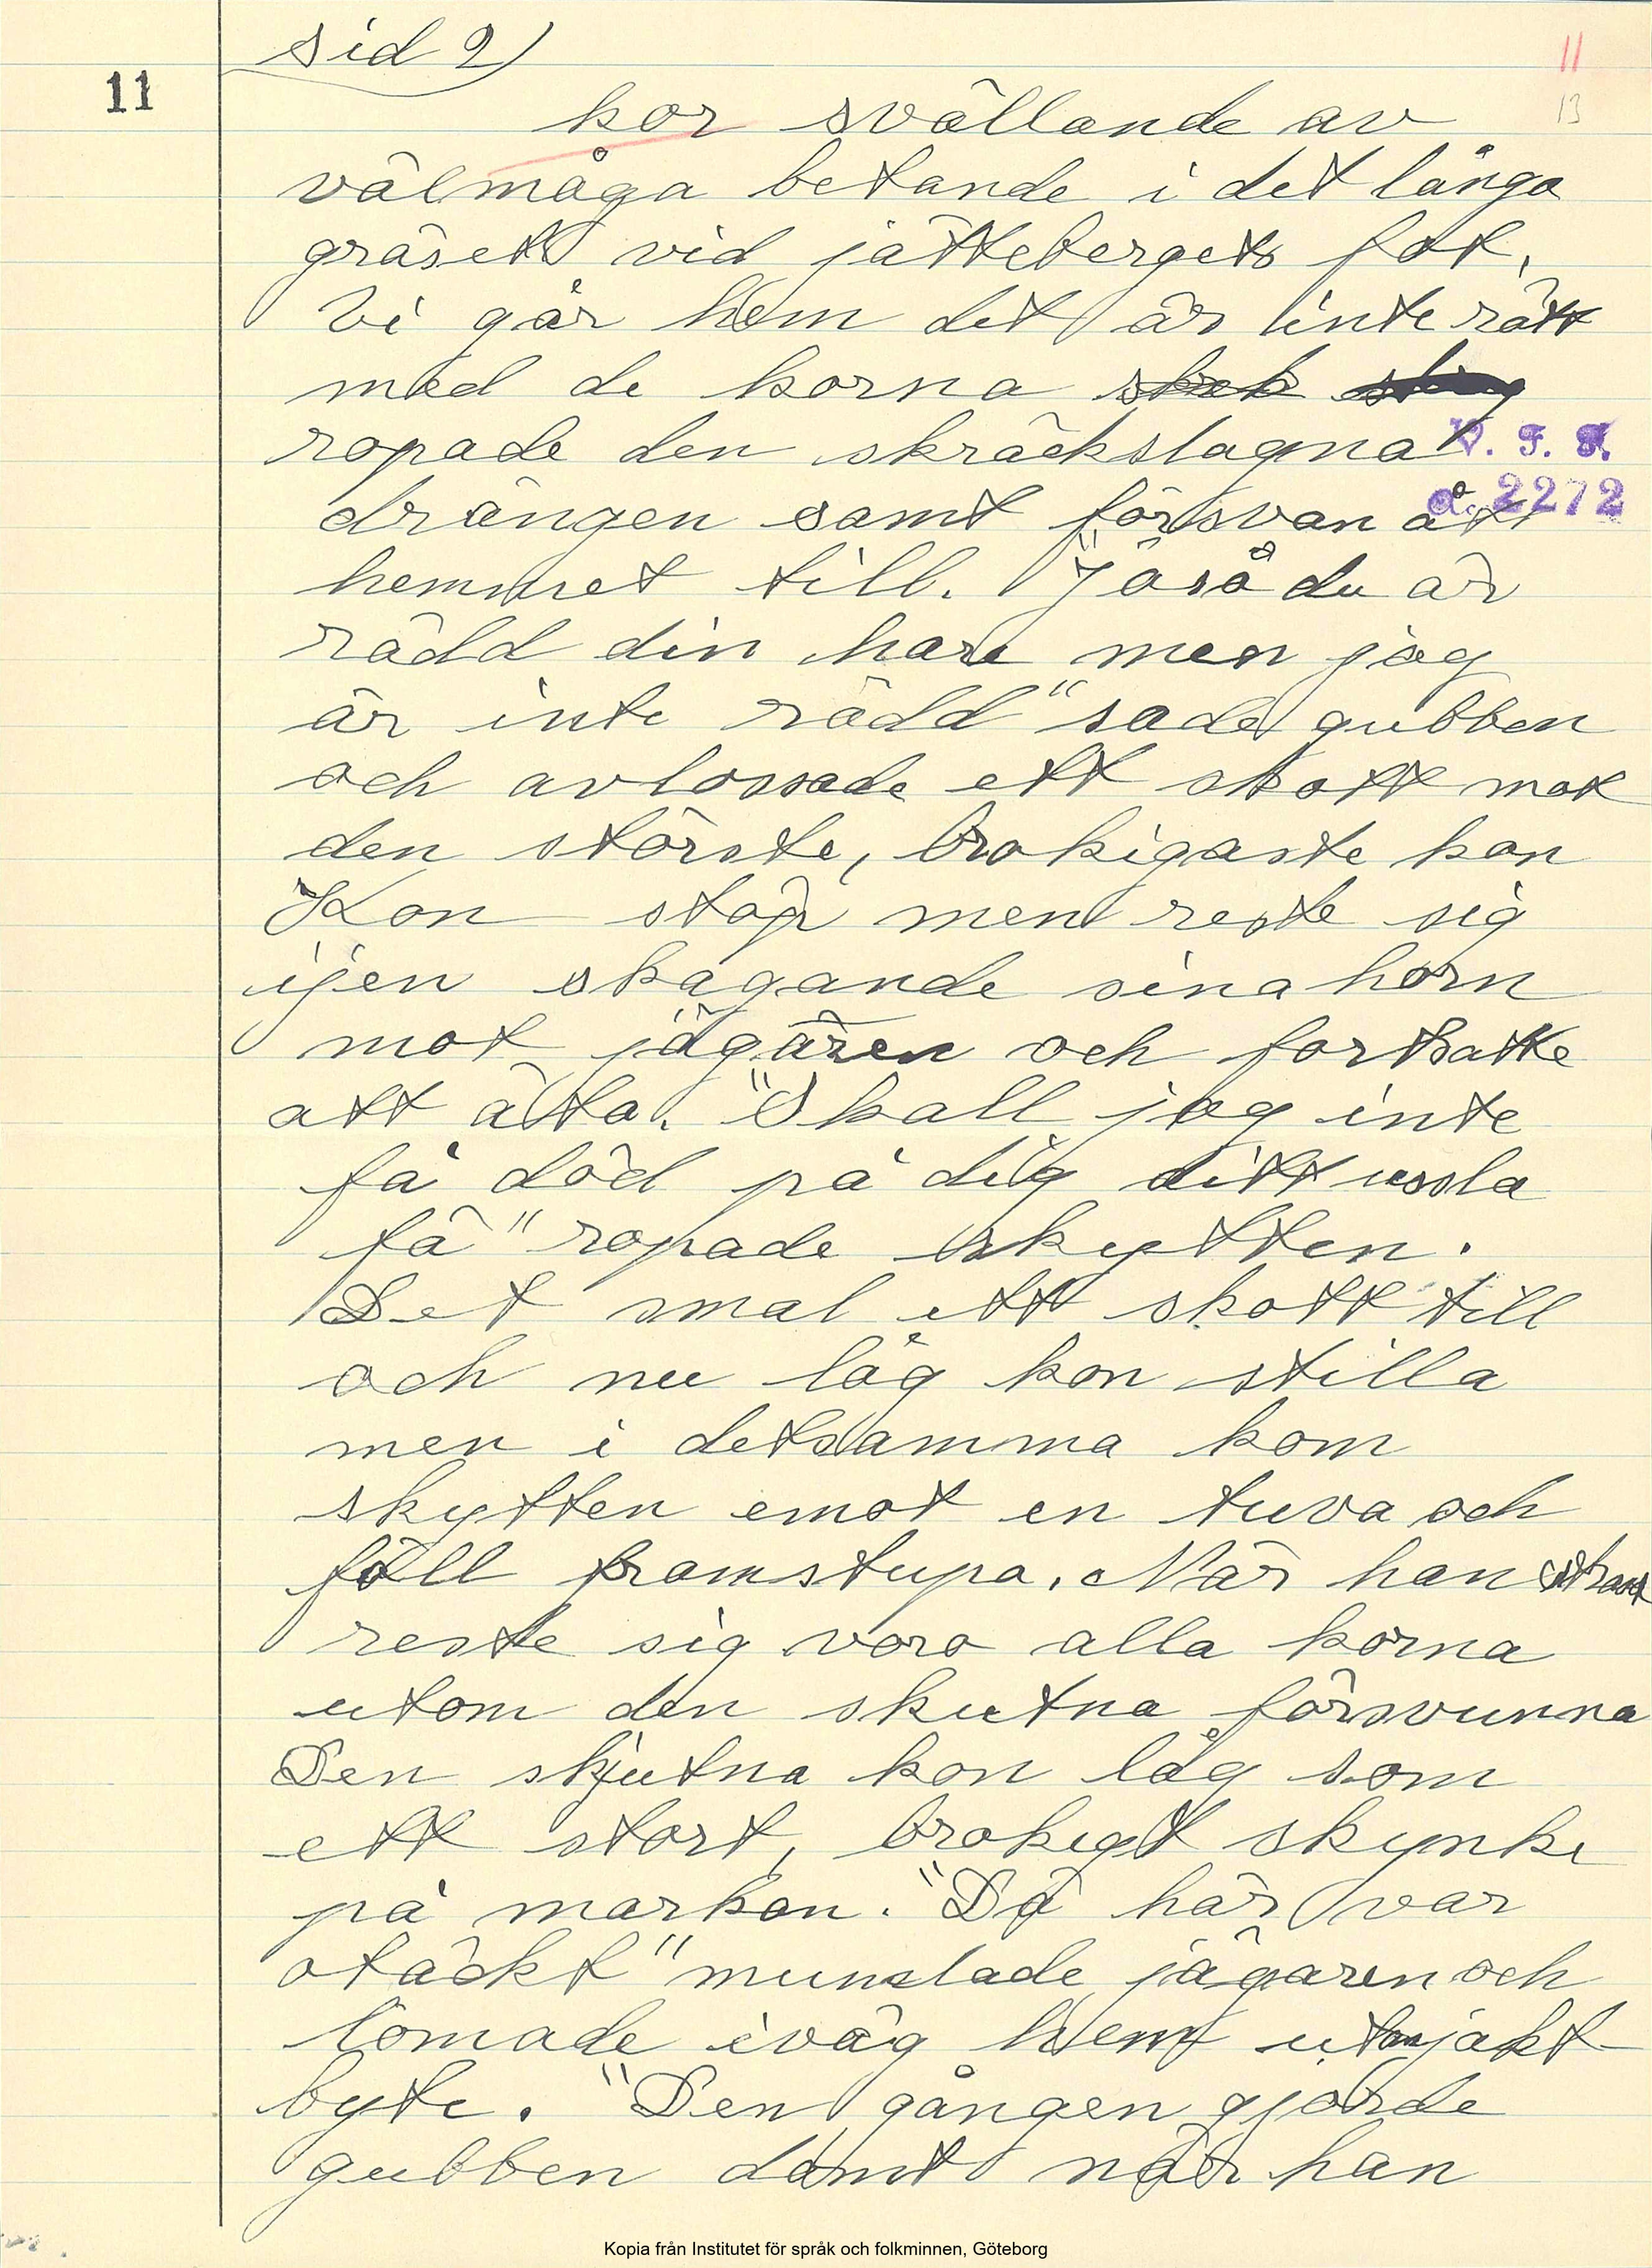 sid 2)
11
11
13
kor svällande av
välmåga betande i det långa
gräset vid jättebergets fot,
Vi går hem det är inte rätt
med de korna
ropade den skräckslagna
V. F. F.
drängen samt försvan åt
a. 2272
hemmet till. "Jåså du är
rädd din hare men jag
är inte rädd" sade gubben
och avlossade ett skott mot
den största, brokigaste kon
Kon stöp men reste sig
igen skagande sina horn
mot jägaren och fortsatte
att äta. "Skall jag inte
få död på dig ditt ussla
fä" ropade skytten.
Det smal ett skott till
och nu låg kon stilla
men i detsamma kom
skytten emot en tuva och
föll framstupa. När han
reste sig voro alla korna
utom den skutna försvunna
Den skjutna kon låg som
ett stort, brokigt skynke
på markon. "Dä här var
otäckt" mumlade jägaren och
lomade iväg hem utan jakt
byte. "Den gången gjorde
gubben dömt när han
Kopia från Institutet för språk och folkminnen, Göteborg